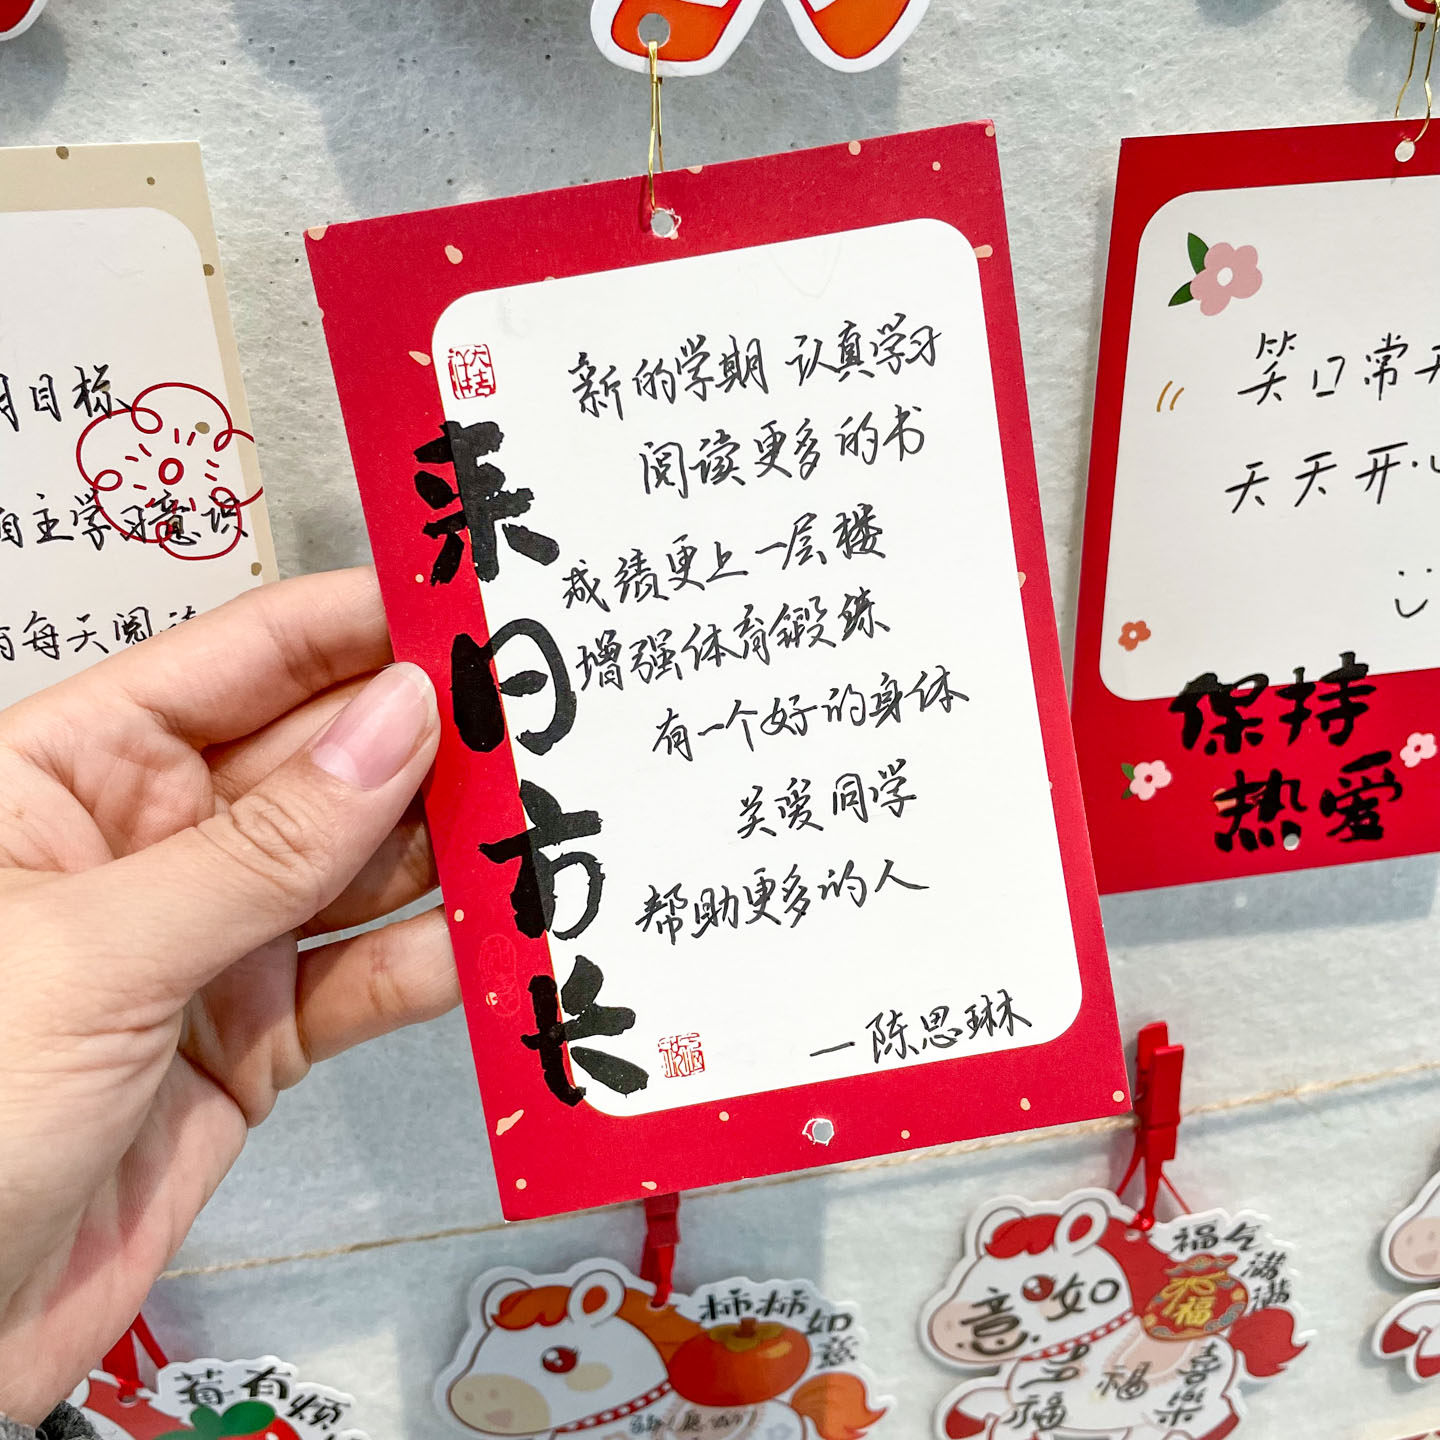 新的学期 认真学习
阅读更多的书
成绩更上一层楼
增强体育锻炼
有一个好的身体
关爱同学
帮助更多的人
一陈思琳
来日方长
大吉
目标
自主学习意识
每天阅读
笑口常开
天天开心
保持
热爱
莓有烦
柿柿如
意
福气
满满
福
如
意
幸福
福
喜
樂